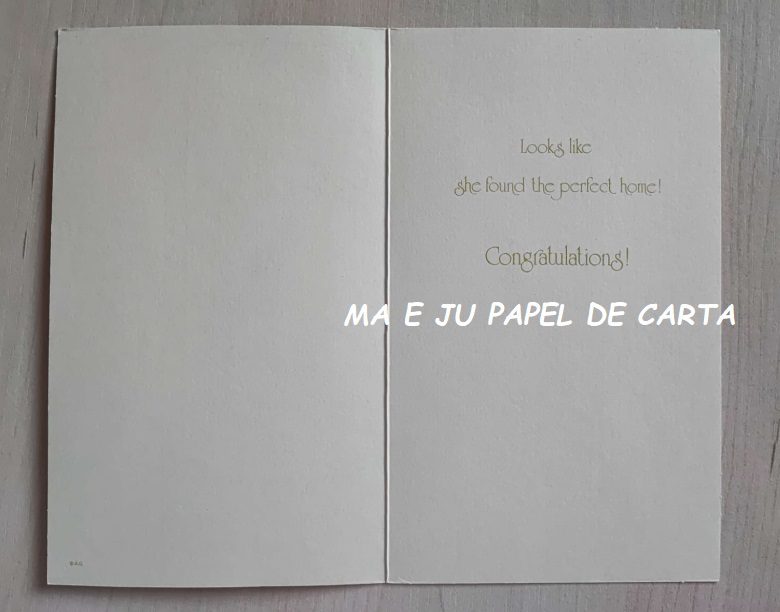 Looks like
she found the perfect home!
Congratulations!
MA E JU PAPEL DE CARTA
©AG